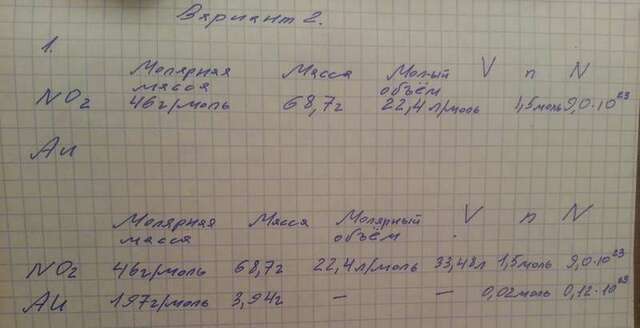 Вариант 2.
1.
Молярная масса Масса Мол-ый объём V n N
NO2 46г/моль 68,7г 22,4л/моль 1,5моль 9,0·10²³
Au
Молярная масса Масса Молярный объём V n N
NO2 46г/моль 68,7г 22,4л/моль 33,48л 1,5моль 9,0·10²³
Au 197г/моль 3,94г — — 0,02моль 0,12·10²³